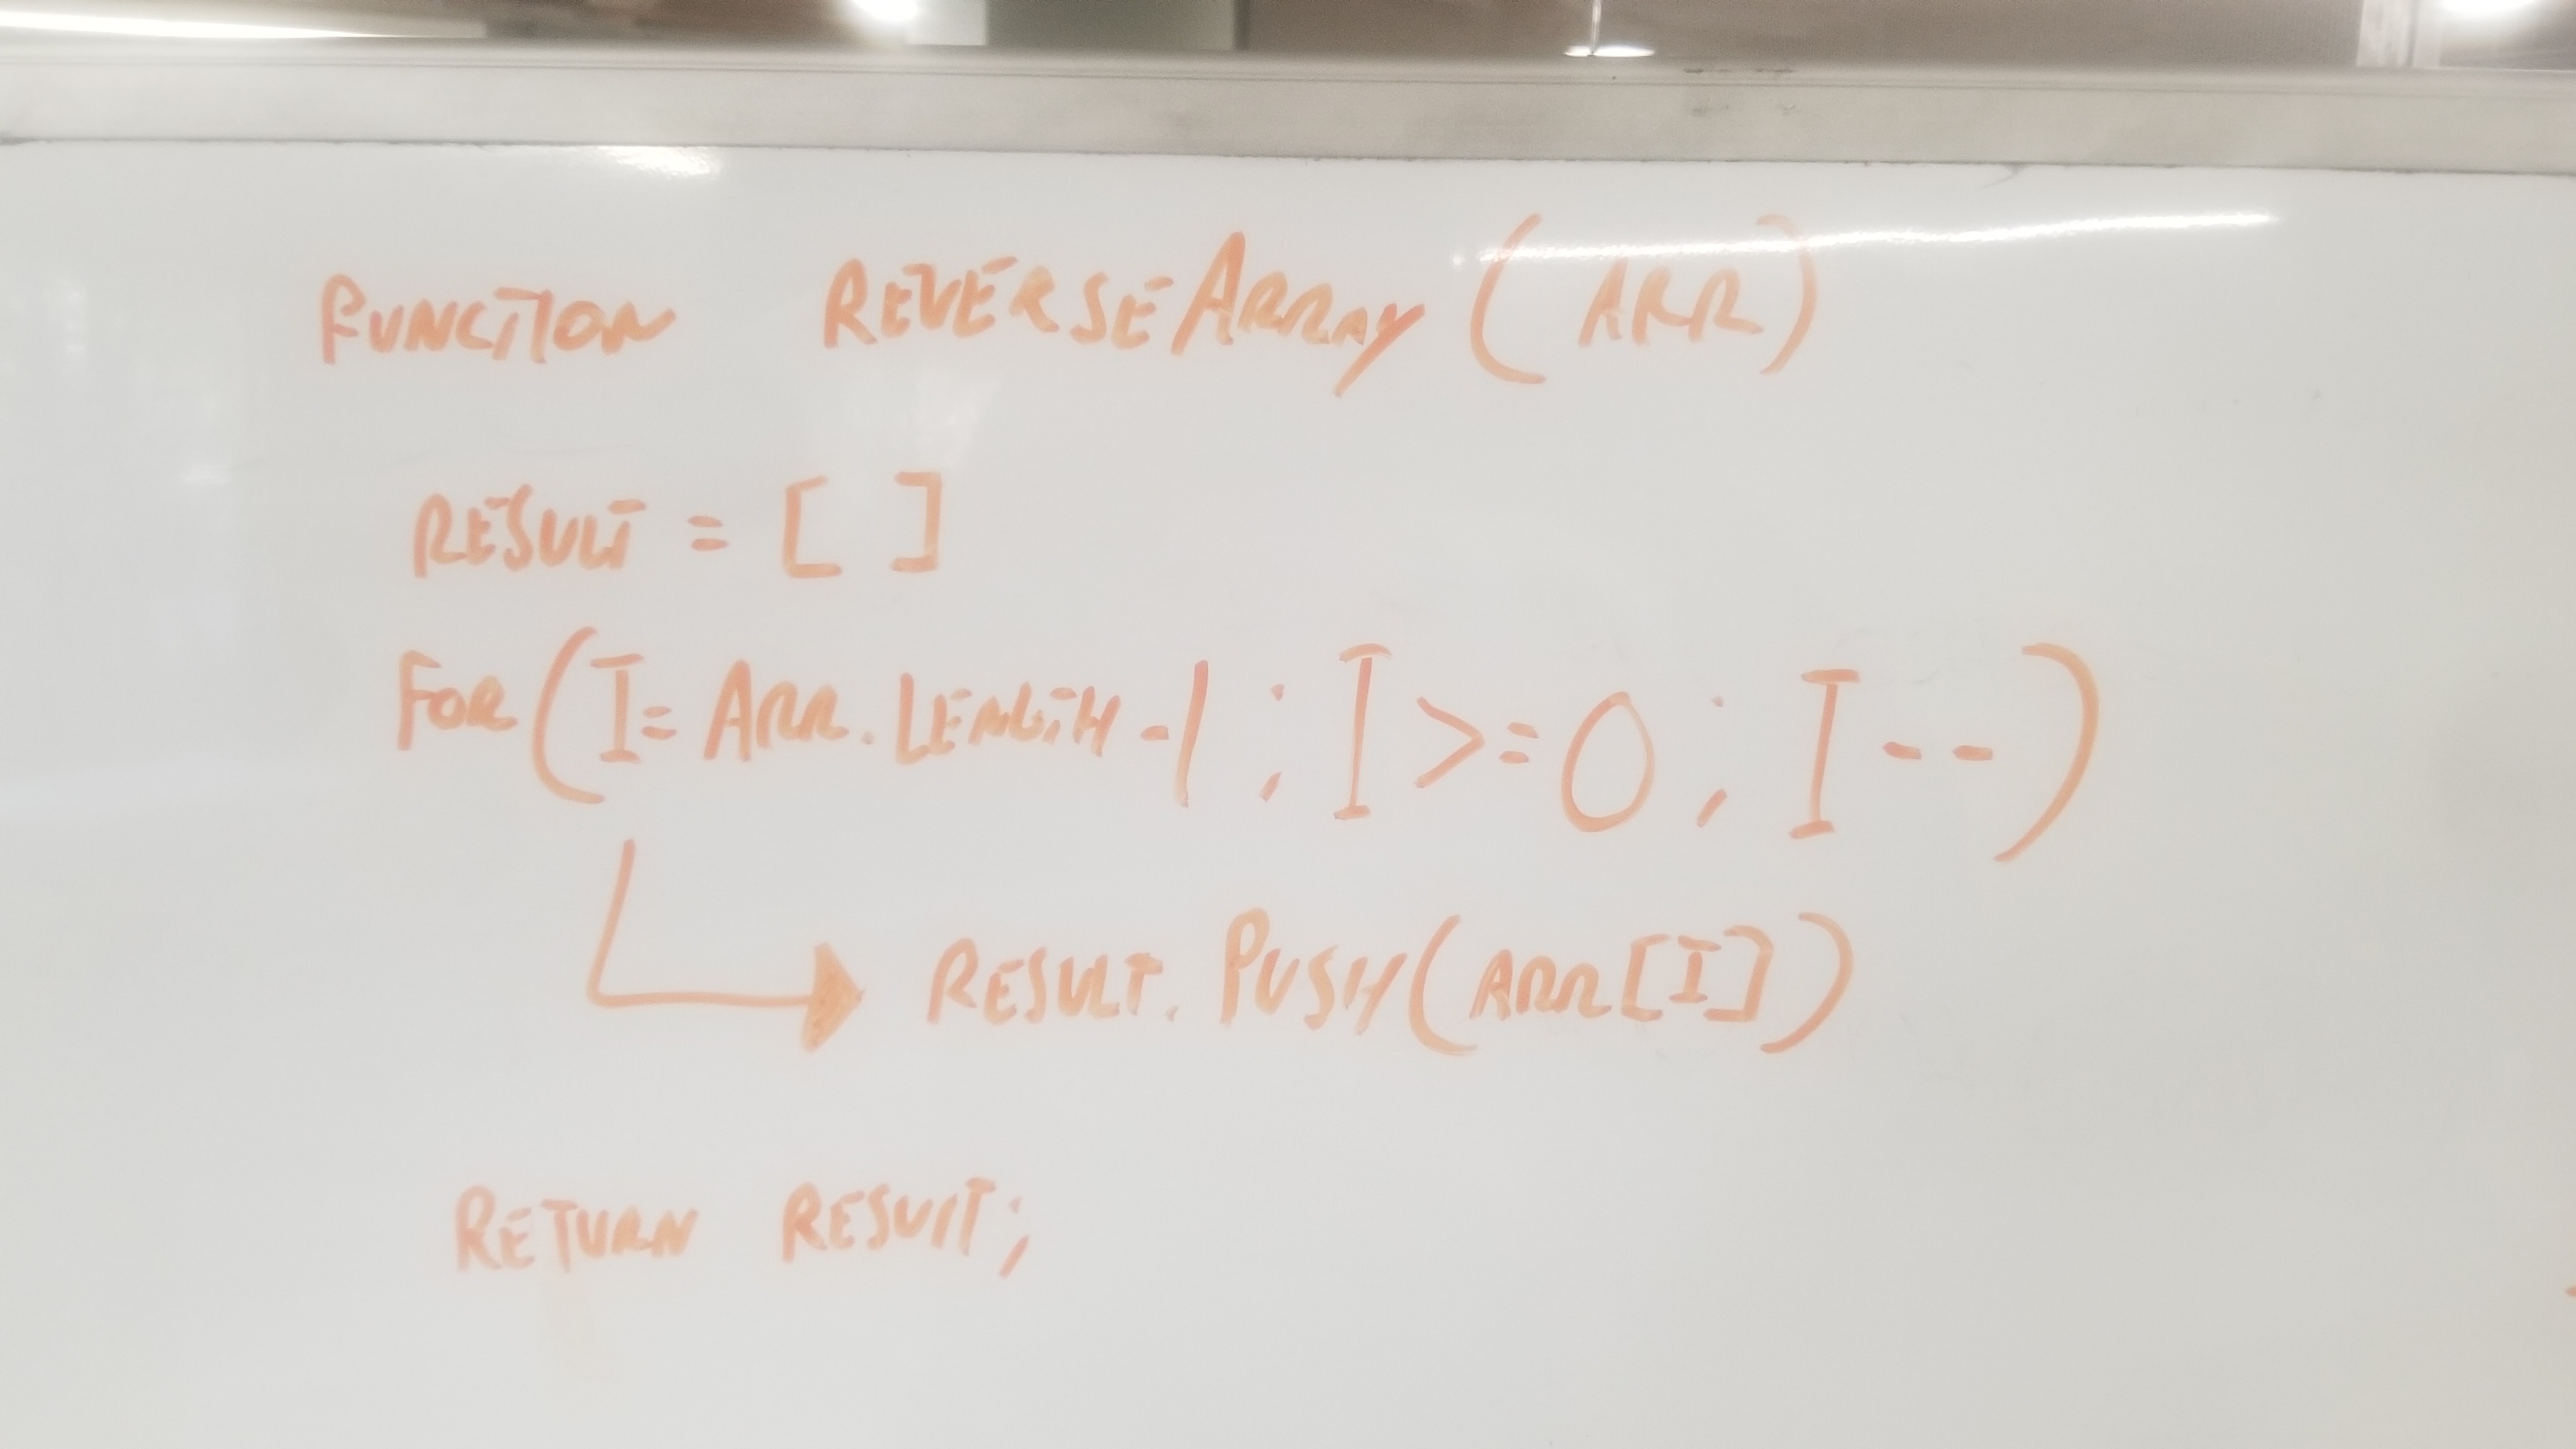 FUNCTION REVERSEARRAY (ARR)
RESULT = [ ]
FOR (I= ARR.LENGTH-1 ; I >= 0 ; I--)
RESULT.PUSH(ARR[I])
RETURN RESULT;